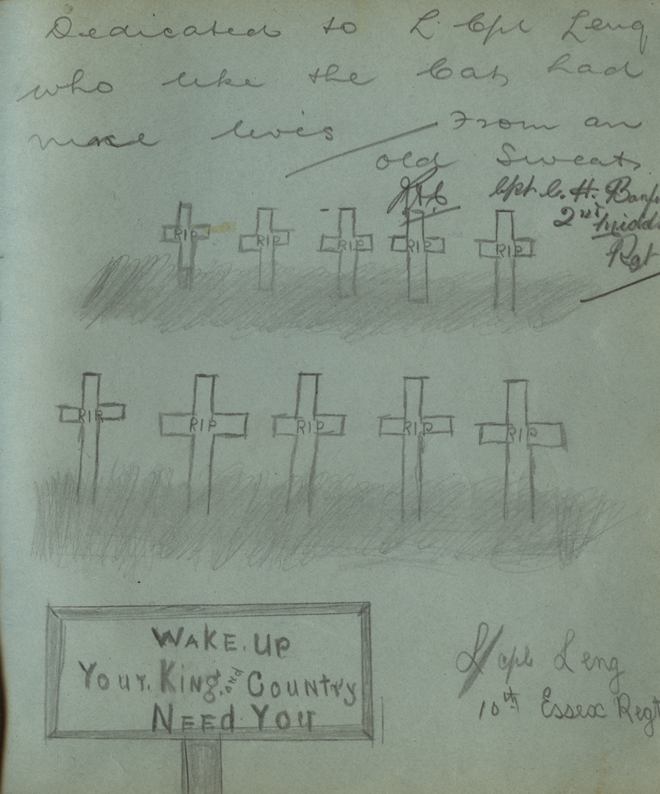 Dedicated to L Cpl Leng
who like the Cat, had
nine lives — From an
old Sweat.
Cpl C. H.
2nd Midd
Rgt
RIP RIP RIP RIP RIP
RIP RIP RIP RIP RIP
WAKE. UP
Your. King. and Country
NEEd You
L/cpl Leng
10th Essex Regt